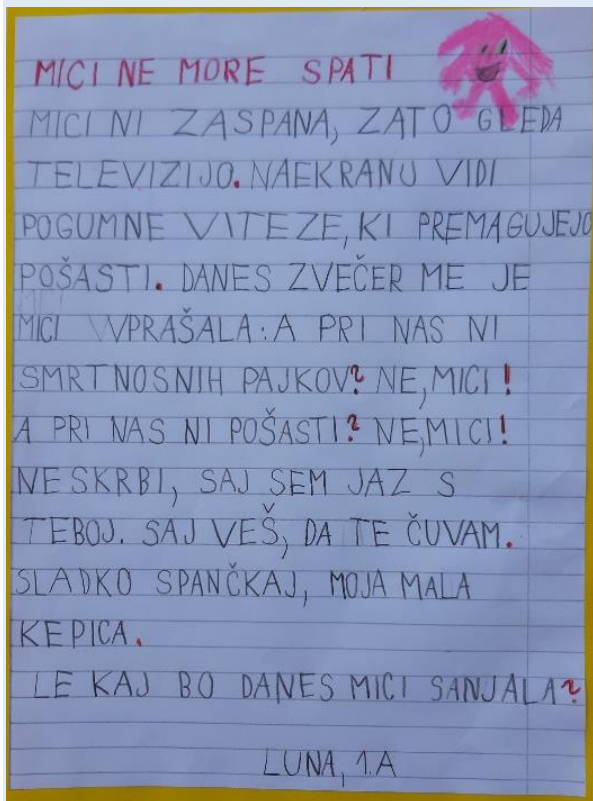 MICI NE MORE SPATI
MICI NI ZASPANA, ZATO GLEDA
TELEVIZIJO. NAEKRANU VIDI
POGUMNE VITEZE, KI PREMAGUJEJO
POŠASTI. DANES ZVEČER ME JE
MICI VPRAŠALA: A PRI NAS NI
SMRTNOSNIH PAJKOV? NE, MICI!
A PRI NAS NI POŠASTI? NE, MICI!
NE SKRBI, SAJ SEM JAZ S
TEBOJ. SAJ VEŠ, DA TE ČUVAM.
SLADKO SPANČKAJ, MOJA MALA
KEPICA.
LE KAJ BO DANES MICI SANJALA?
LUNA, 1.A